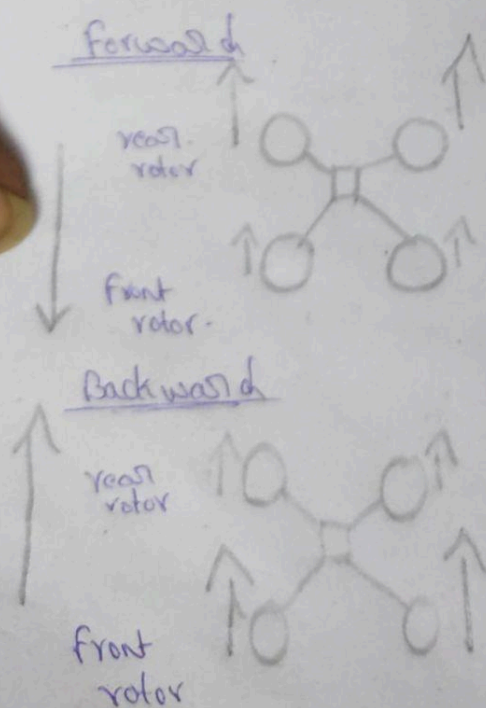 Forward
rear
rotor
front
rotor.
Backward
rear
rotor
front
rotor